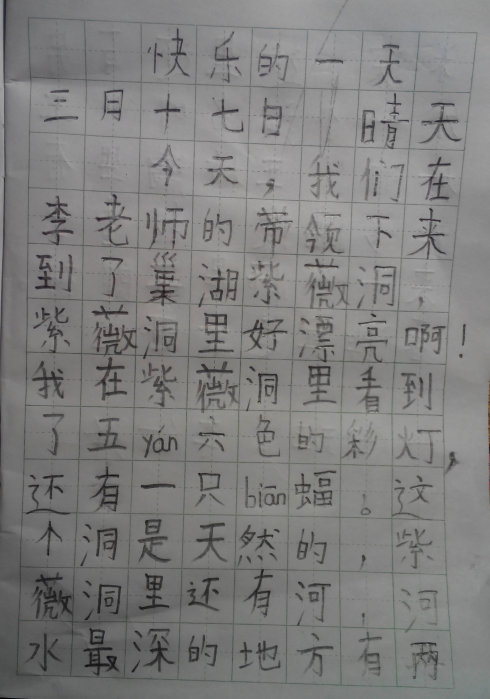 快乐的一天
三月十七日 晴天
今天，我们在
李老师的带领下来
到了巢湖紫薇洞，
紫薇洞里好漂亮啊！
我在紫薇洞里看到
了五yán六色的彩灯，
还有一只biān蝠。这
个洞是天然的，紫
薇洞里还有河，河
水最深的地方有两